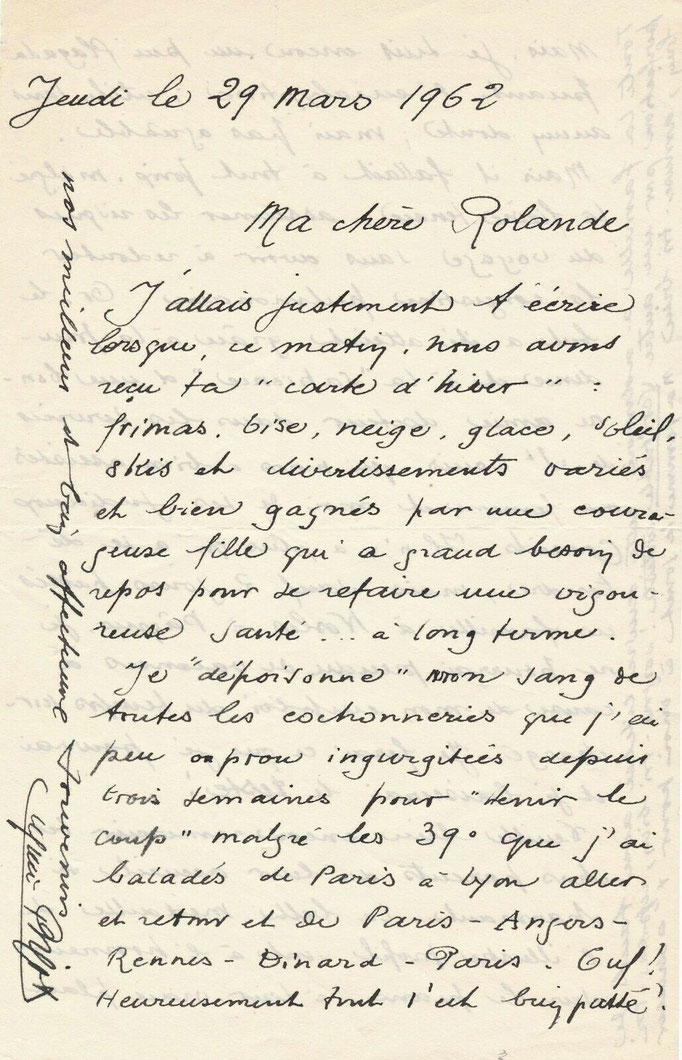 Jeudi le 29 mars 1962
Ma chère Rolande
J'allais justement t'écrire
lorsque, ce matin, nous avons
reçu ta "carte d'hiver" :
frimas, bise, neige, glace, soleil,
skis et divertissements variés
et bien gagnés par une coura-
geuse fille qui a grand besoin de
repos pour se refaire une vigou-
reuse santé... à long terme.
Je "dépoisonne" mon sang de
toutes les cochonneries que j'ai
peu ou prou ingurgitées depuis
trois semaines pour "tenir le
coup" malgré les 39° que j'ai
baladés de Paris à Lyon aller
et retour et de Paris - Angers -
Rennes - Dinard - Paris. Ouf!
Heureusement tout s'est bien passé!
nos meilleurs et bien affectueux souvenirs